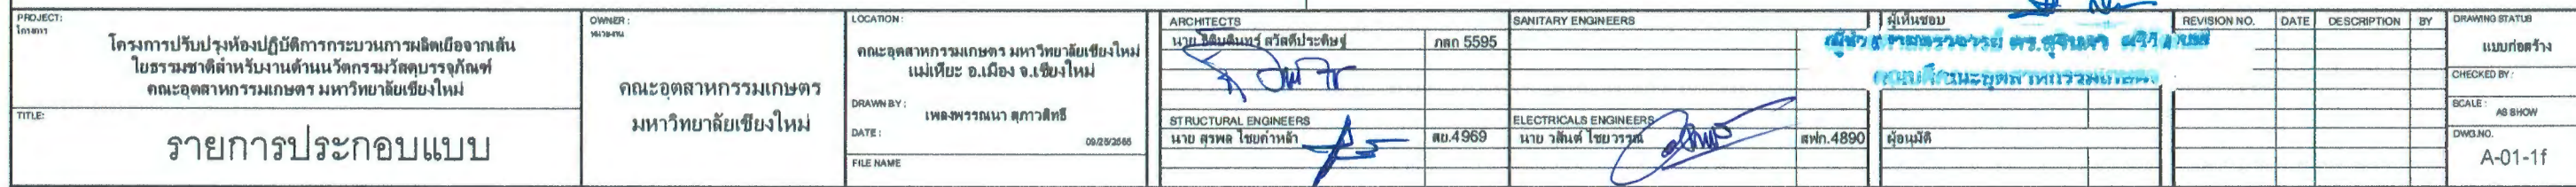 PROJECT:
โครงการ
โครงการปรับปรุงห้องปฏิบัติการกระบวนการผลิตเยื่อจากเส้น
ใยธรรมชาติสำหรับงานด้านนวัตกรรมวัสดุบรรจุภัณฑ์
คณะอุตสาหกรรมเกษตร มหาวิทยาลัยเชียงใหม่
TITLE:
รายการประกอบแบบ
OWNER :
หน่วยงาน
คณะอุตสาหกรรมเกษตร
มหาวิทยาลัยเชียงใหม่
LOCATION :
คณะอุตสาหกรรมเกษตร มหาวิทยาลัยเชียงใหม่
แม่เหียะ อ.เมือง จ.เชียงใหม่
DRAWN BY :
เพลงพรรณนา สุภาวสิทธิ์
DATE :
FILE NAME
ARCHITECTS
นาย ธิติบดินทร์ สวัสดีประดิษฐ์ ภสถ 5595
STRUCTURAL ENGINEERS
นาย สุรพล ไชยคำหล้า สย.4969
SANITARY ENGINEERS
ELECTRICALS ENGINEERS
นาย วสันต์ ไชยวรรณ์ สฟก.4890
ผู้เห็นชอบ
คณบดีคณะอุตสาหกรรมเกษตร
ผู้อนุมัติ
REVISION NO. DATE DESCRIPTION BY
DRAWING STATUS
แบบก่อสร้าง
CHECKED BY :
SCALE :
AS SHOW
DWG.NO.
A-01-1f